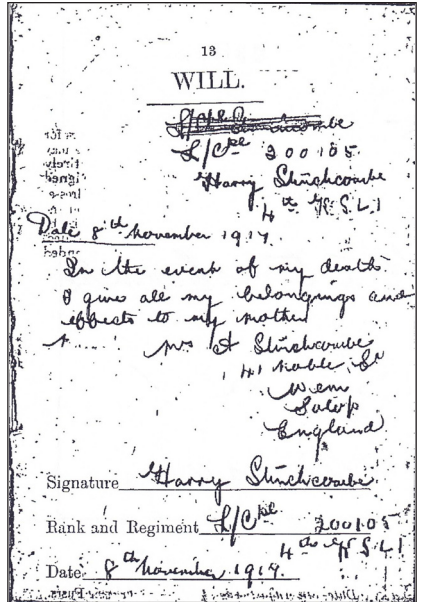 13
WILL.
L/Cpl
L/Cpl 200105
Harry Stinchcombe
4th K.S.L.I
Date 8th November 1917.
In the event of my death
I give all my belongings and
effects to my mother
Mrs A Stinchcombe
41 Noble St
Wem
Salop
England
Signature Harry Stinchcombe
Rank and Regiment L/Cpl 200105
4th K.S.L.I
Date 8th November 1917.